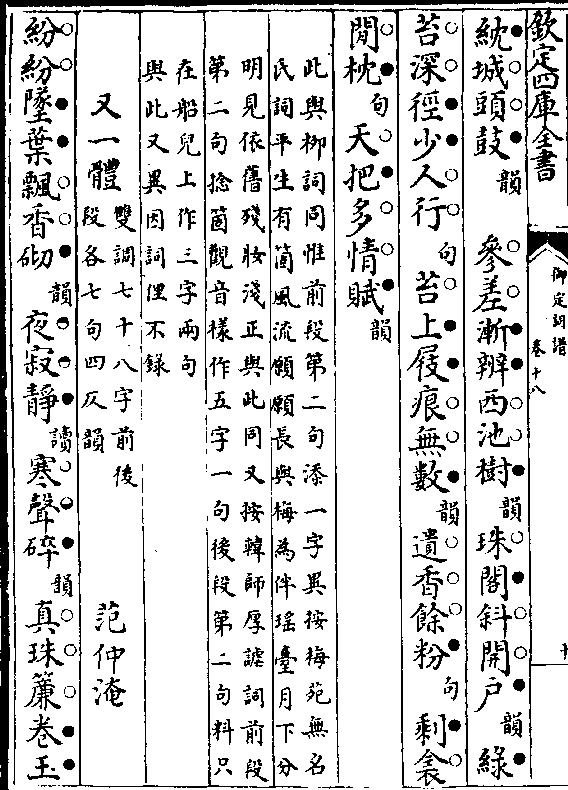 欽定四庫全書
御定詞譜
卷十八
十
紞城頭鼓韻 參差漸辨西池樹韻珠閣斜開戶韻綠
苔深徑少人行句苔上屐痕無數韻遺香餘粉句剩衾
閒枕句天把多情賦韻
此與柳詞同惟前段第二句添一字異按梅苑無名
氏詞平生有箇風流願願長與梅為伴瑤臺月下分
明見依舊殘妝淺正與此同又按韓師厚謔詞前段
第二句捻箇觀音樣作五字一句後段第二句料只
在船兒上作三字兩句
與此又異因詞俚不錄
又一體 雙調七十八字前後
段各七句四仄韻 范仲淹
紛紛墜葉飄香砌韻夜寂靜讀寒聲碎韻真珠簾卷玉